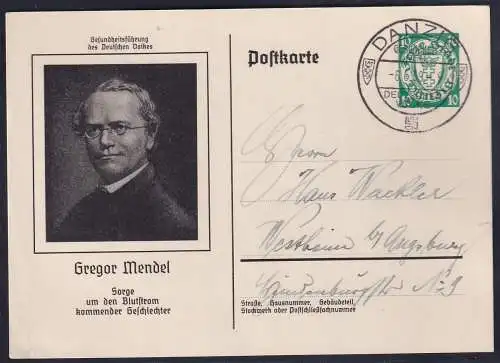 Gesundheitsführung
des Deutschen Volkes
Gregor Mendel
Sorge
um den Blutstrom
kommender Geschlechter
Postkarte
DANZIG
10 10
Herrn
Hans Wackler
Westheim b/ Augsburg
Hindenburgstr No 9
Straße, Hausnummer, Gebäudeteil,
Stockwerk oder Postschließfachnummer